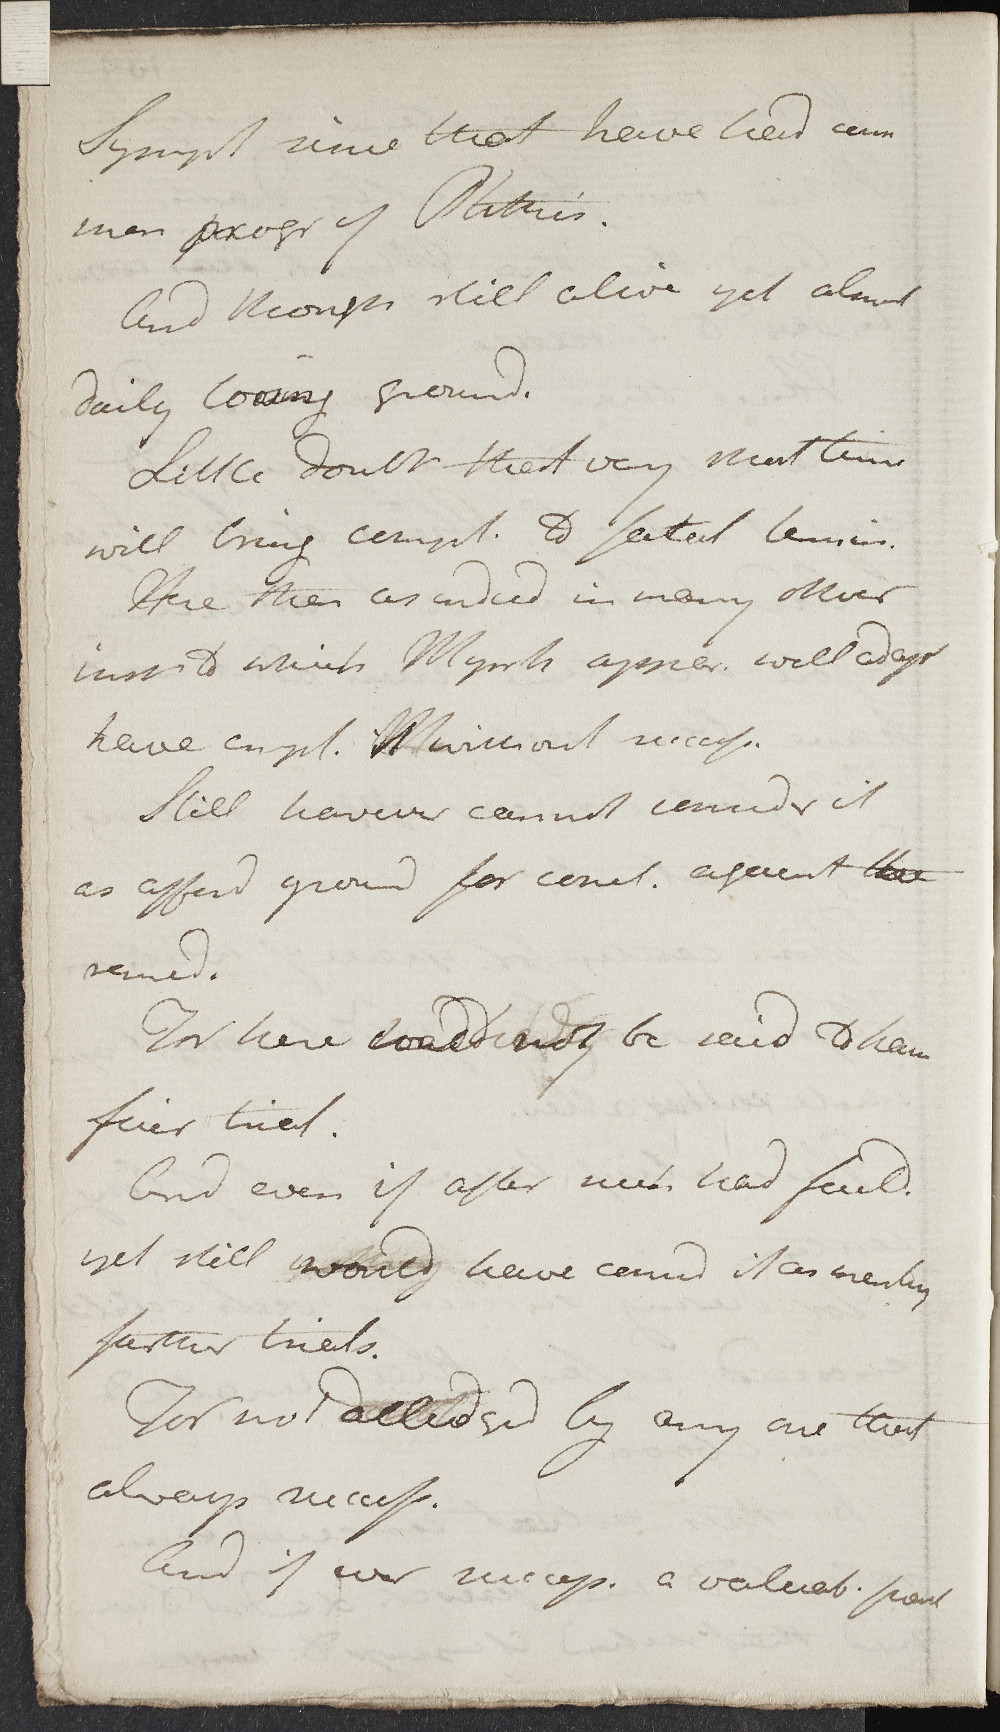 Sympt since that have had com
mon progr of Phthisis.
And though still alive yet almost
daily loosing ground.
Little doubt that very short time
will bring compl. to fatal termin.
Here then as indeed in many other
inst to which Myrrh appear. well adapt
have empl. it without success.
Still however cannot consider it
as afford ground for concl. against the
remed.
For here could not be said to have
fair trial.
And even if after such had faild.
yet still would have consid it as meriting
farther trials.
For not alledged by any one that
always success.
And if ever success. a valuab. point